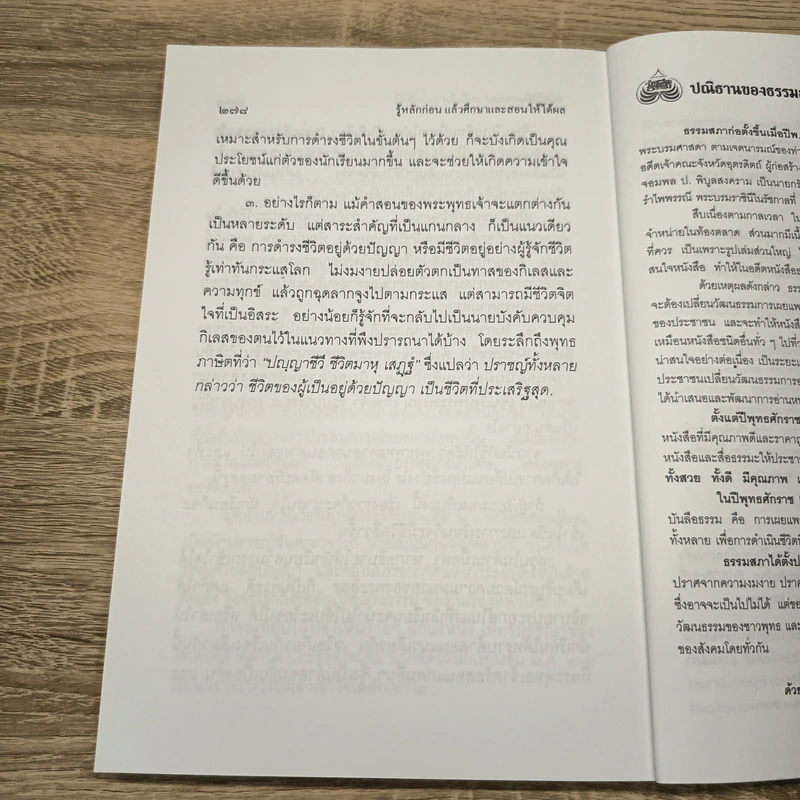 ๒๗๘ รู้หลักก่อน แล้วศึกษาและสอนให้ได้ผล
เหมาะสำหรับการดำรงชีวิตในขั้นต้นๆ ไว้ด้วย ก็จะบังเกิดเป็นคุณ
ประโยชน์แก่ตัวของนักเรียนมากขึ้น และจะช่วยให้เกิดความเข้าใจ
ดีขึ้นด้วย
๓. อย่างไรก็ตาม แม้คำสอนของพระพุทธเจ้าจะแตกต่างกัน
เป็นหลายระดับ แต่สาระสำคัญที่เป็นแกนกลาง ก็เป็นแนวเดียว
กัน คือ การดำรงชีวิตอยู่ด้วยปัญญา หรือมีชีวิตอยู่อย่างผู้รู้จักชีวิต
รู้เท่าทันกระแสโลก ไม่งมงายปล่อยตัวตกเป็นทาสของกิเลสและ
ความทุกข์ แล้วถูกฉุดลากจูงไปตามกระแส แต่สามารถมีชีวิตจิต
ใจที่เป็นอิสระ อย่างน้อยก็รู้จักที่จะกลับไปเป็นนายบังคับควบคุม
กิเลสของตนไว้ในแนวทางที่พึงปรารถนาได้บ้าง โดยระลึกถึงพุทธ
ภาษิตที่ว่า “ปญฺญาชีวึ ชีวิตมาหุ เสฏฺฐํ” ซึ่งแปลว่า ปราชญ์ทั้งหลาย
กล่าวว่า ชีวิตของผู้เป็นอยู่ด้วยปัญญา เป็นชีวิตที่ประเสริฐสุด.
ปณิธานของธรรมะ
ธรรมสภาก่อตั้งขึ้นเมื่อปีพ.
พระบรมศาสดา ตามเจตนารมณ์ของท่า
อดีตเจ้าคณะจังหวัดอุตรดิตถ์ ผู้ก่อสร้าง
จอมพล ป. พิบูลสงคราม เป็นนายกรั
รำไพพรรณี พระบรมราชินีในรัชกาลที่
สืบเนื่องตามกาลเวลา ใน
จำหน่ายในท้องตลาด ส่วนมากมีเนื้
ที่ควร เป็นเพราะรูปเล่มส่วนใหญ่
สนใจหนังสือ ทำให้ในอดีตหนังสือ
ด้วยเหตุผลดังกล่าว ธรร
จะต้องเปลี่ยนวัฒนธรรมการเผยแพ
ของประชาชน และจะทำให้หนังสื
เหมือนหนังสือชนิดอื่นทั่ว ๆ ไปที่ว
น่าสนใจอย่างต่อเนื่อง เป็นระยะเ
ประชาชนเปลี่ยนวัฒนธรรมการอ่
ได้นำเสนอและพัฒนาการอ่านหน
ตั้งแต่ปีพุทธศักราช
หนังสือที่มีคุณภาพดีและราคาถู
หนังสือและสื่อธรรมะให้ประชา
ทั้งสวย ทั้งดี มีคุณภาพ
ในปีพุทธศักราช
บันลือธรรม คือ การเผยแพ
ทั้งหลาย เพื่อการดำเนินชีวิตที่
ธรรมสภาได้ตั้งป
ปราศจากความงมงาย ปราศ
ซึ่งอาจจะเป็นไปไม่ได้ แต่ขอ
วัฒนธรรมของชาวพุทธ และ
ของสังคมโดยทั่วกัน
ด้วย